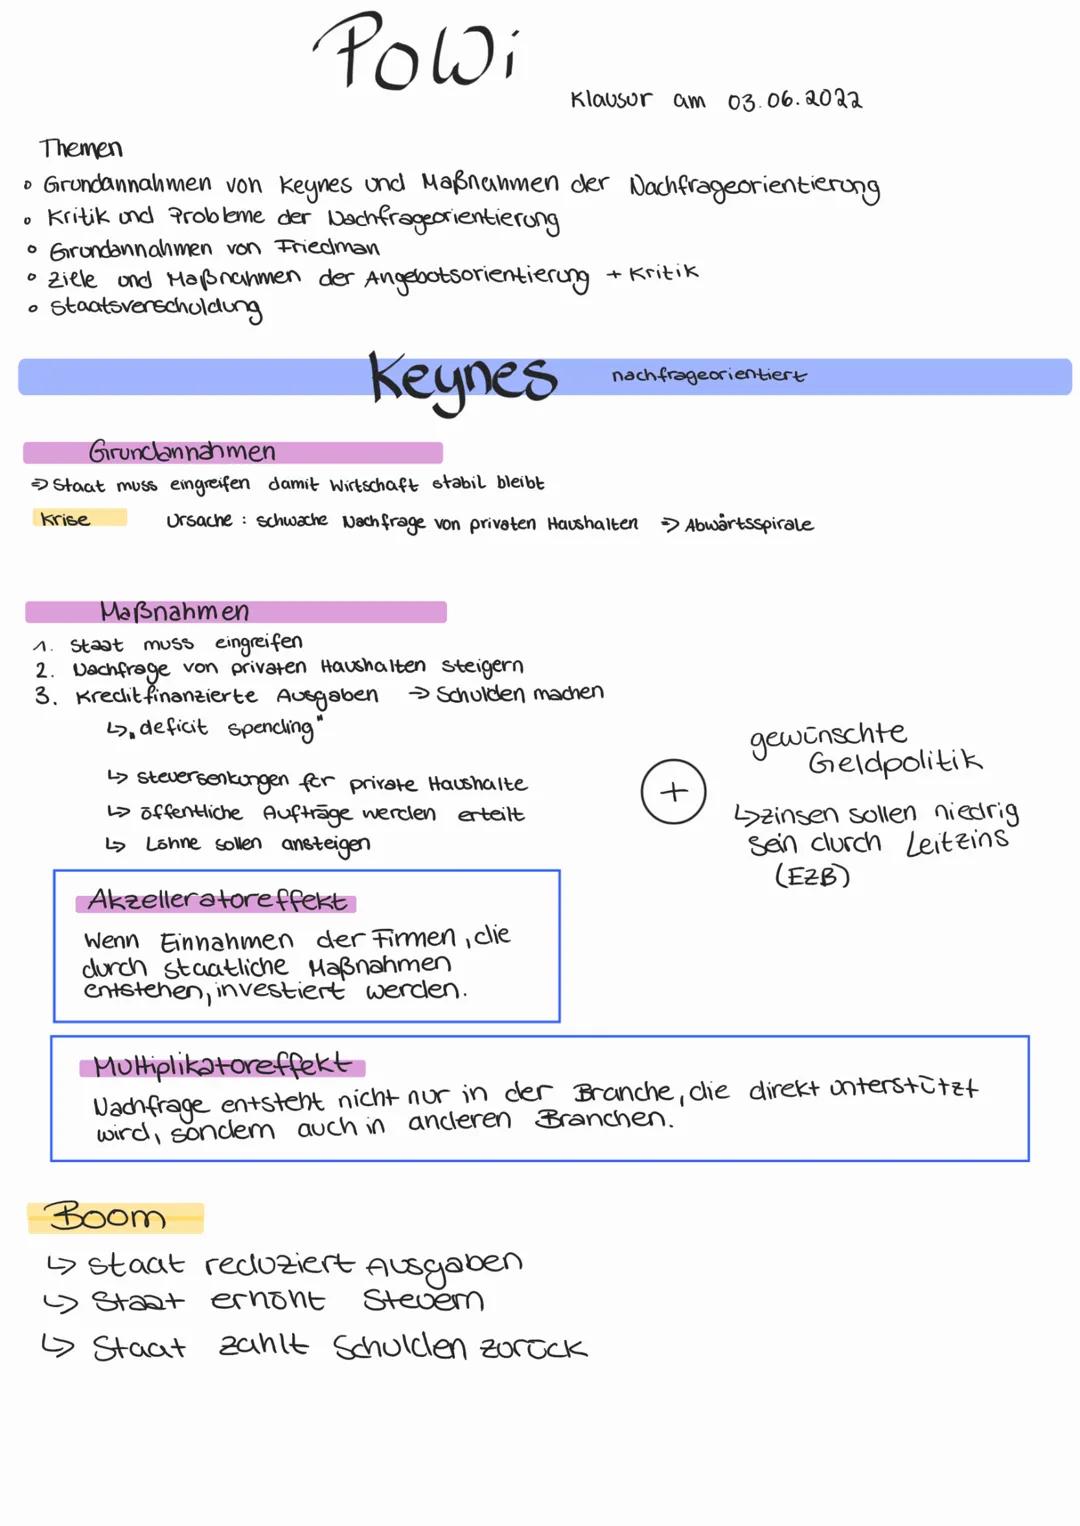 PoWi
Klausur am 03.06.2022
Themen
• Grundannahmen von Keynes und Maßnahmen der Nachfrageorientierung
• Kritik und Probleme der Nachfrageorientierung
• Grundannahmen von Friedman
• Ziele und Maßnahmen der Angebotsorientierung + Kritik
• Staatsverschuldung
Keynes nachfrageorientiert
Grundannahmen
⇒ Staat muss eingreifen damit Wirtschaft stabil bleibt
Krise Ursache : schwache Nachfrage von privaten Haushalten ⇒ Abwärtsspirale
Maßnahmen
1. Staat muss eingreifen
2. Nachfrage von privaten Haushalten steigern
3. Kreditfinanzierte Ausgaben → Schulden machen
↳ „deficit spending"
↳ Steuersenkungen für private Haushalte
↳ öffentliche Aufträge werden erteilt
↳ Löhne sollen ansteigen
+
gewünschte
Geldpolitik
↳ zinsen sollen niedrig
sein durch Leitzins
(EZB)
Akzelleratoreffekt
Wenn Einnahmen der Firmen, die
durch staatliche Maßnahmen
entstehen, investiert werden.
Multiplikatoreffekt
Nachfrage entsteht nicht nur in der Branche, die direkt unterstützt
wird, sondern auch in anderen Branchen.
Boom
↳ Staat reduziert Ausgaben
↳ Staat erhöht Steuern
↳ Staat zahlt Schulden zurück